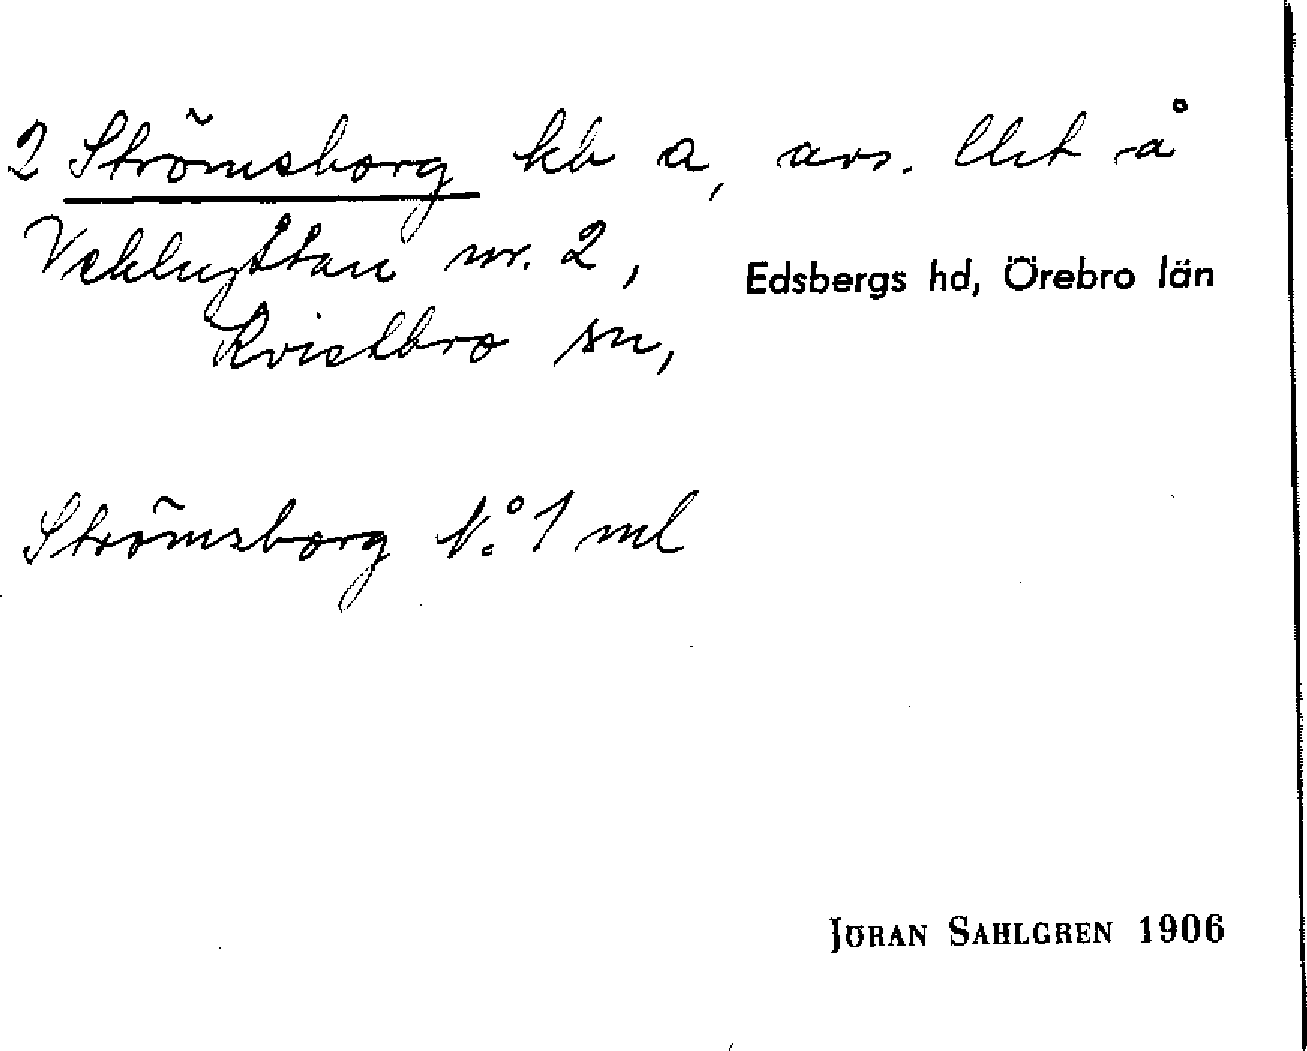 2 Strömsborg kb a, avs. lht å
Vekhyttan nr. 2,
Edsbergs hd, Örebro län
Kvistbro sn,
Strömsborg N:o 1 ml
JÖRAN SAHLGREN 1906